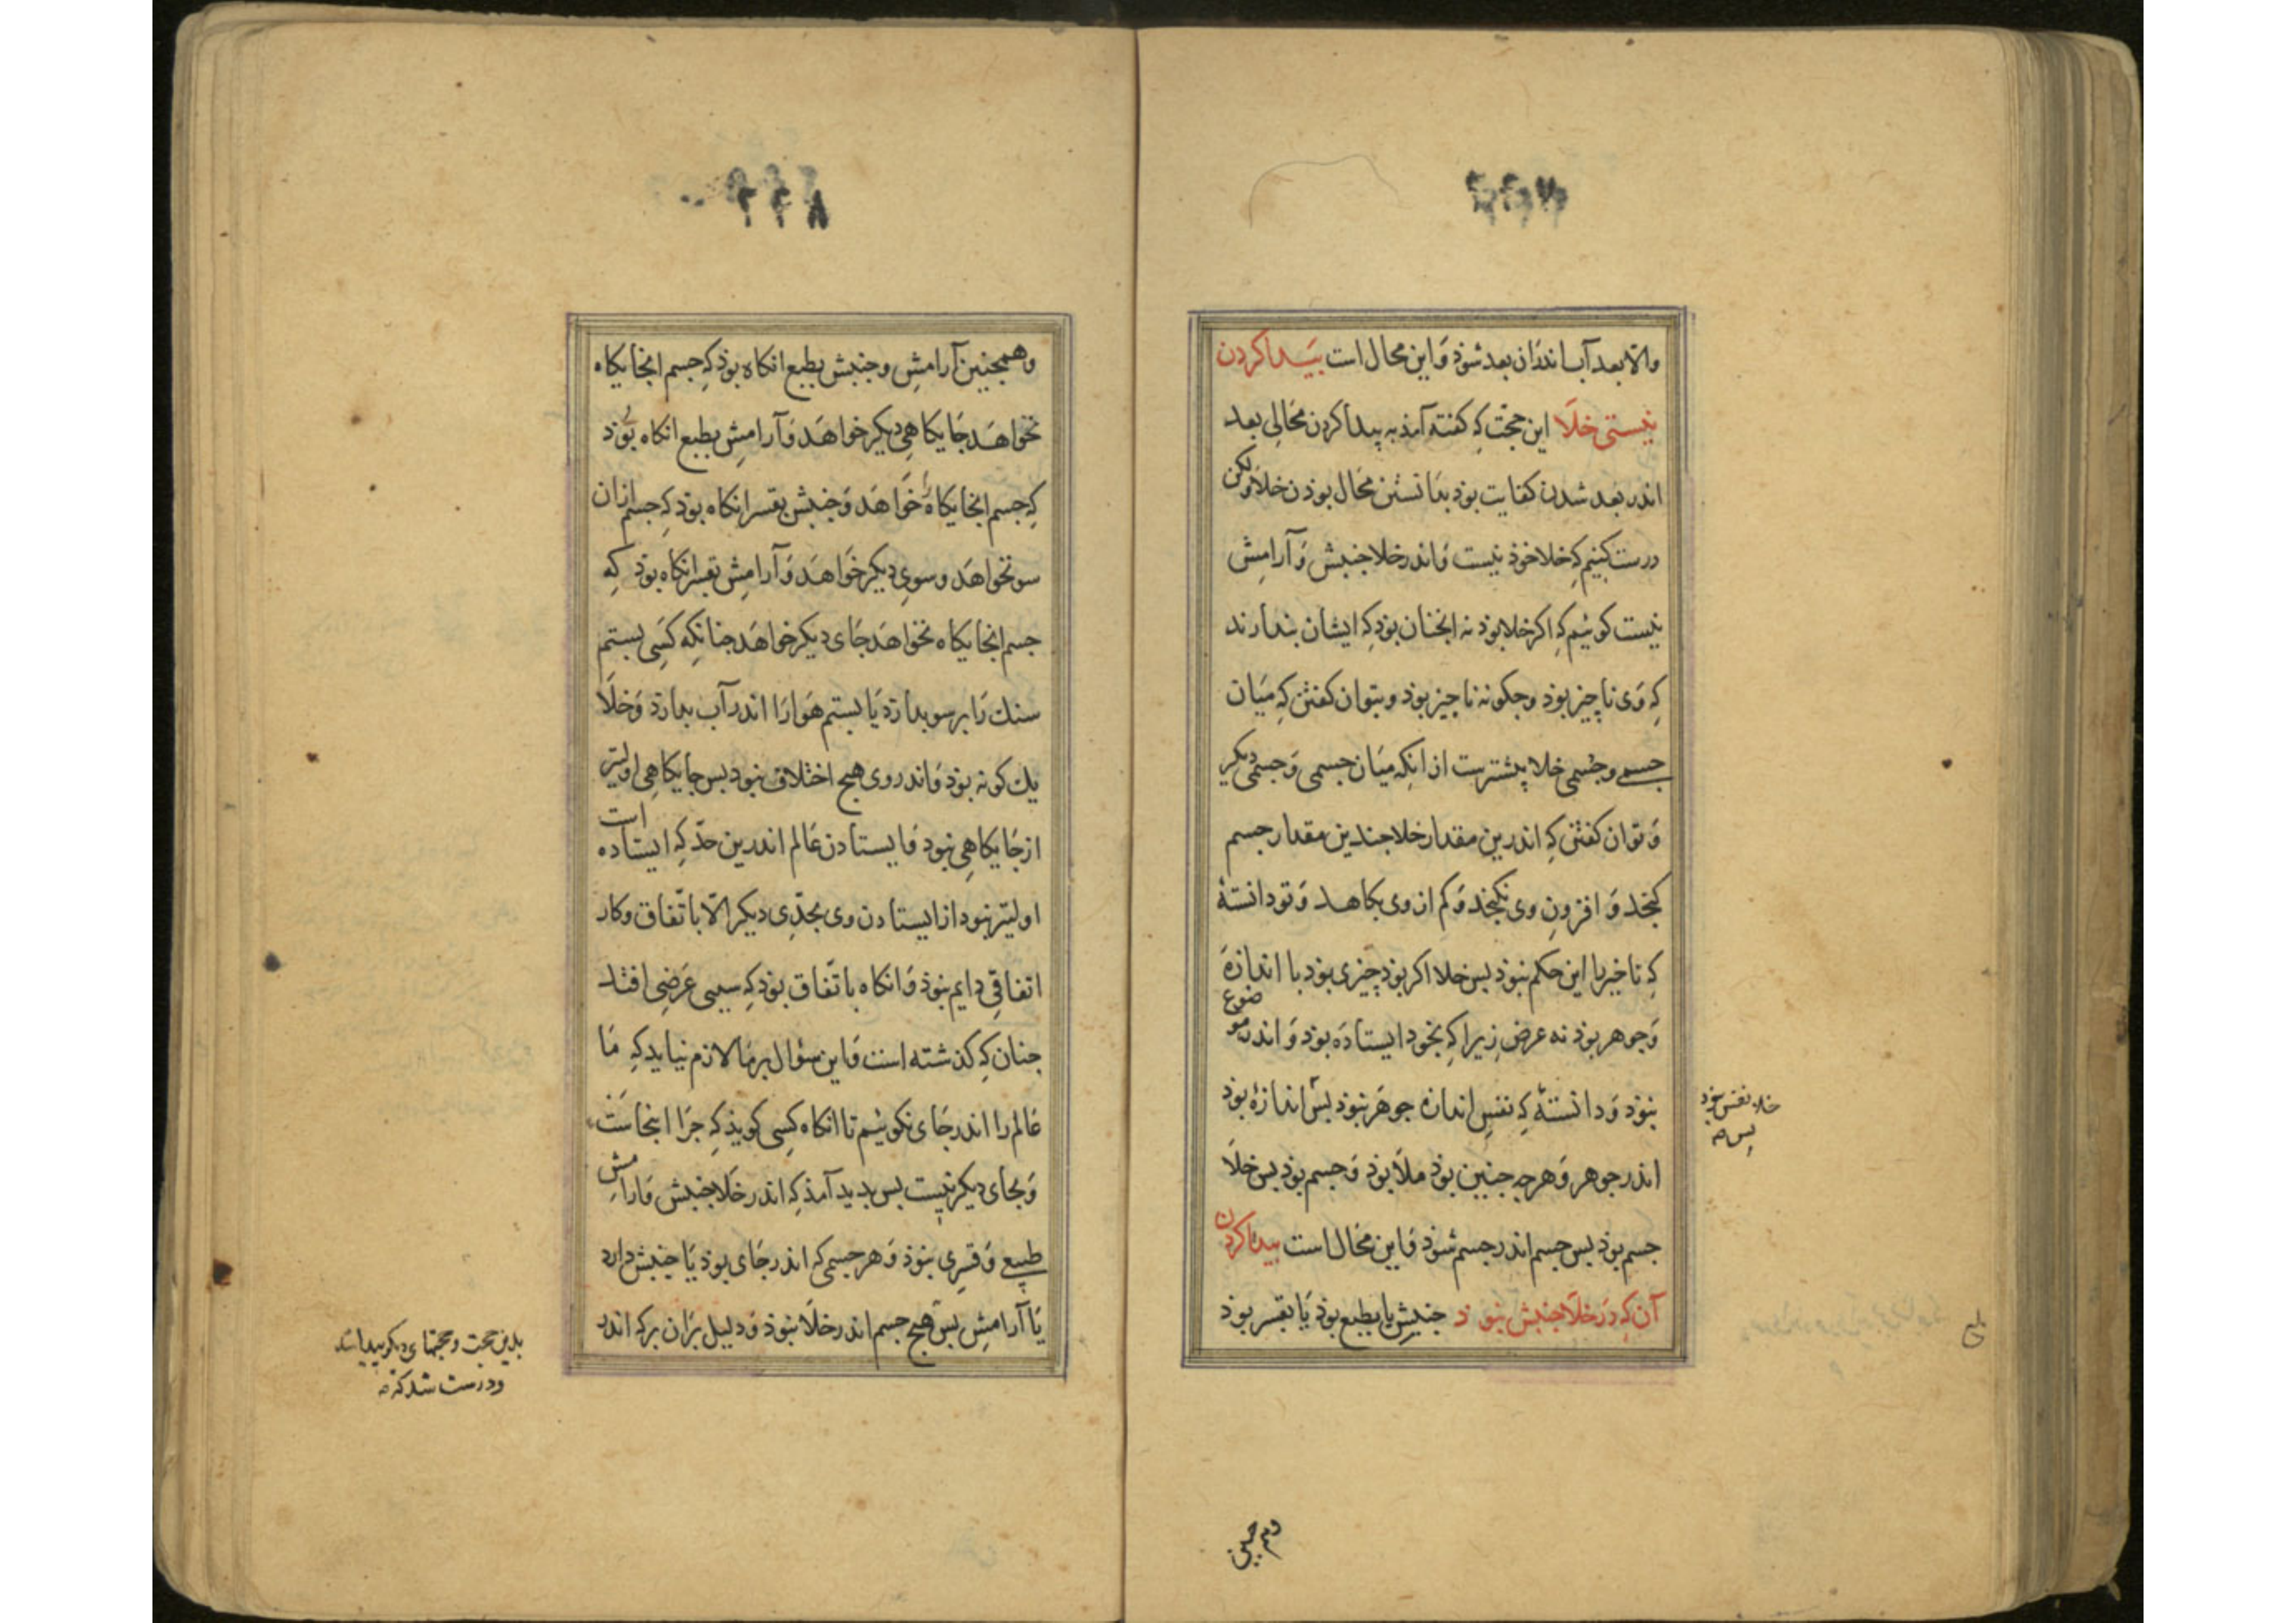 والا بعد آب اندر ان بعد شوذ وَاین محال است بَیَدا کردن
نیستی خلَا این حجّت کِه کفته آمذ به پیدا کردن محَالِی بعد
اندر بَعد شدن کفایت بوذ بدَانستن محَال بوذن خلا وَلکن
درست کنیم کِه خلا خوذ نیست وَاندر خلا جنبش وَ آرامِش
نیست کوئیم کِه اکر خلا بوذ نه انجنان بوذ کِه ایشان بندارند
کِه وَی ناچیز بوذ وجکونه ناجیز بوذ وبتوان کفتن کِه میَان
جسمی وجسمی خلا پیشترست از انکِه میَان جسمی وَجسمی دیکر
وَتوان کفتن کِه اندرین مقدار خلا جندین مقدار جسم
کنجد وَ افزونِ وی نکنجد وَکم از وی بکاهد وَ تو دانستۀ
کِه ناجیز با این حکم نبوذ بس خلا اکر بوذ چیزی بوذ با اندازَه
وَجوهر بوذ نه عرض زیرا کِه بخود ایستاذَه بوذ وَ اندر موضوع
نبوذ وَدانستۀ کِه نفسِ اندازه جوهَر نبوذ بس اندازۀ بوذ
اندر جوهر وَهرجه جنین بوذ ملَا بوذ وَجسم بوذ بس خلَا
جسم بوذ بس جسم اندر جسم شوذ وَاین محَال است بیدا کردن
آن کِه دَر خلَا جنبش نبوذ جنبش یا بطبع بوذ یَا بقسر بوذ
خلا نفس نبوذ
بس صه
وهمجنین
وهمجنین آرامشِ وجنبش بطبع انکاه بوذ کِه جسم انجایکاه
نخواهَد جَایکاهی دیکر خواهَد وَآرامِش بطبع انکاه بوَذ
کِه جسم انجایکاه خوَاهَد وَجنبش بقسر انکاه بوذ کِه جسم ازان
سو نخواهَد وسویِ دیکر خوَاهَد وَآرامِش بقسر انکاه بوذ کِه
جسم انجایکاه نخواهَد جَای دیکر خواهَد جنانکِه کَسِی بستم
سنک رَا بر سو بدارَد یَا بستم هوَا رَا اندر آب بدارَد وَخلَا
یک کونه بوذ وَاندر وی هیج اختلاف نبود بس جَایکاهی اولیتر
از جَایکاهی نبود وَایستاذن عَالم اندرین حدّ کِه ایستاذه است
اولیتر نبود از ایستاذن وی بحدّی دیکر الّا باتّفاق وکار
اتفاقی دایم نبوذ وَانکاه باتّفاق بوذ کِه سببی عَرَضی افتد
جنان کِه کذشته است وَاین سؤال بر مَا لازم نیاید کِه مَا
عَالم را اندر جَای نکوئیم تا انکاه کسِی کویذ کِه جرَا اینجاست
وَبجای دیکر نیست بس بدید آمذ کِه اندر خلَا جنبش وَارامش
طبیعی وَقسری نبوذ وَهر جسمی کِه اندر جَای بوذ یَا جنبش دارد
یَا آرامش بس هیج جسم اندر خلَا نبوذ وَدلیل بَران برکِه اندر
بدین حجت وحجتهای دیکر پیدا شد
ودرست شد کِه صه